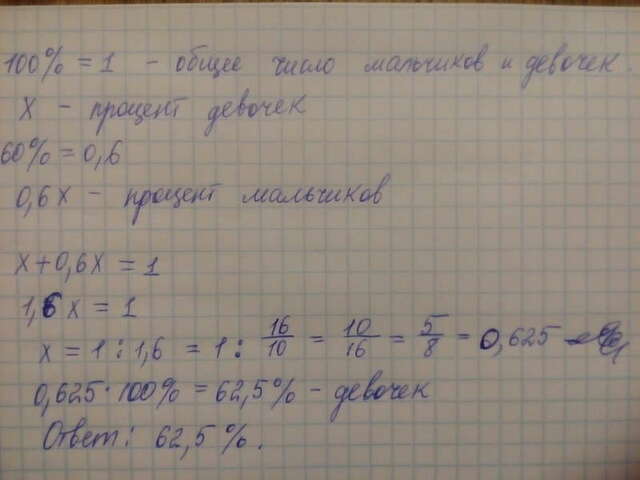 100% = 1 - общее число мальчиков и девочек.
x - процент девочек
60% = 0,6
0,6x - процент мальчиков
x+0,6x = 1
1,6x = 1
x = 1 : 1,6 = 1 : 16/10 = 10/16 = 5/8 = 0,625
0,625·100% = 62,5% - девочек
Ответ: 62,5%.